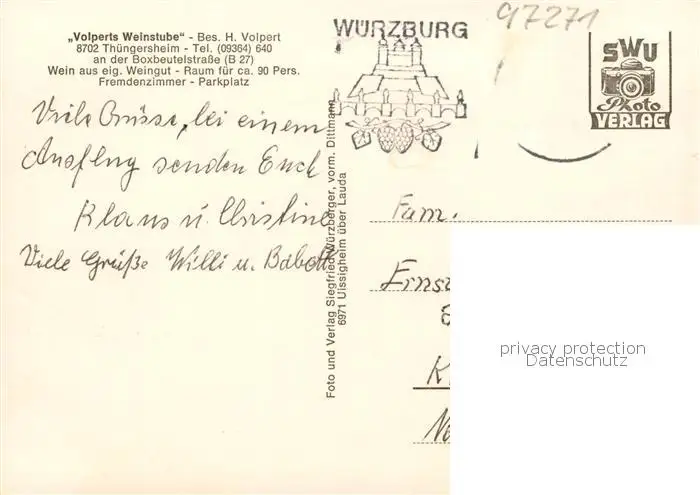 „Volperts Weinstube“ - Bes. H. Volpert
8702 Thüngersheim - Tel. (09364) 640
an der Boxbeutelstraße (B 27)
Wein aus eig. Weingut - Raum für ca. 90 Pers.
Fremdenzimmer - Parkplatz
Viele Grüsse, bei einem
Ausflug senden Euch
Klaus u. Christine
Viele Grüße Willi u.
Foto und Verlag Siegfried Würzberger, vorm. Dittmann
6971 Uissigheim über Lauda
WÜRZBURG
97271
SWU
Photo
VERLAG
Fam.
privacy protection
Datenschutz